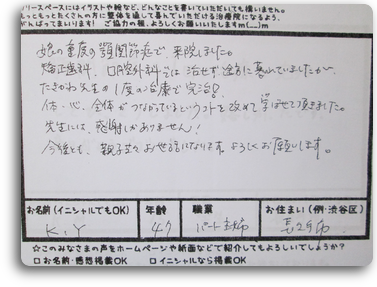 リースペースにはイラストや絵など、どんなことを書いていただいても構いません。
もっともっとたくさんの方に整体を通して喜んでいただける治療院になるよう、
がんばってまいります! ご協力の程、よろしくお願いいたしますm(__)m
娘の重度の顎関節症で来院しました。
矯正歯科、口腔外科では治せず途方に暮れていましたが、
たきのわ先生の1度の治療で完治!
体・心、全体がつながっているということを改めて学ばせて頂きました。
先生には、感謝しかありません!
今後とも、親子共々お世話になります。よろしくお願いします。
お名前(イニシャルでもOK) 年齢 職業 お住まい(例・渋谷区)
K.Y 47 パート主婦
☆このみなさまの声をホームページや紙面などで紹介してもよろしいでしょうか?
□お名前・感想掲載OK □イニシャルなら掲載OK